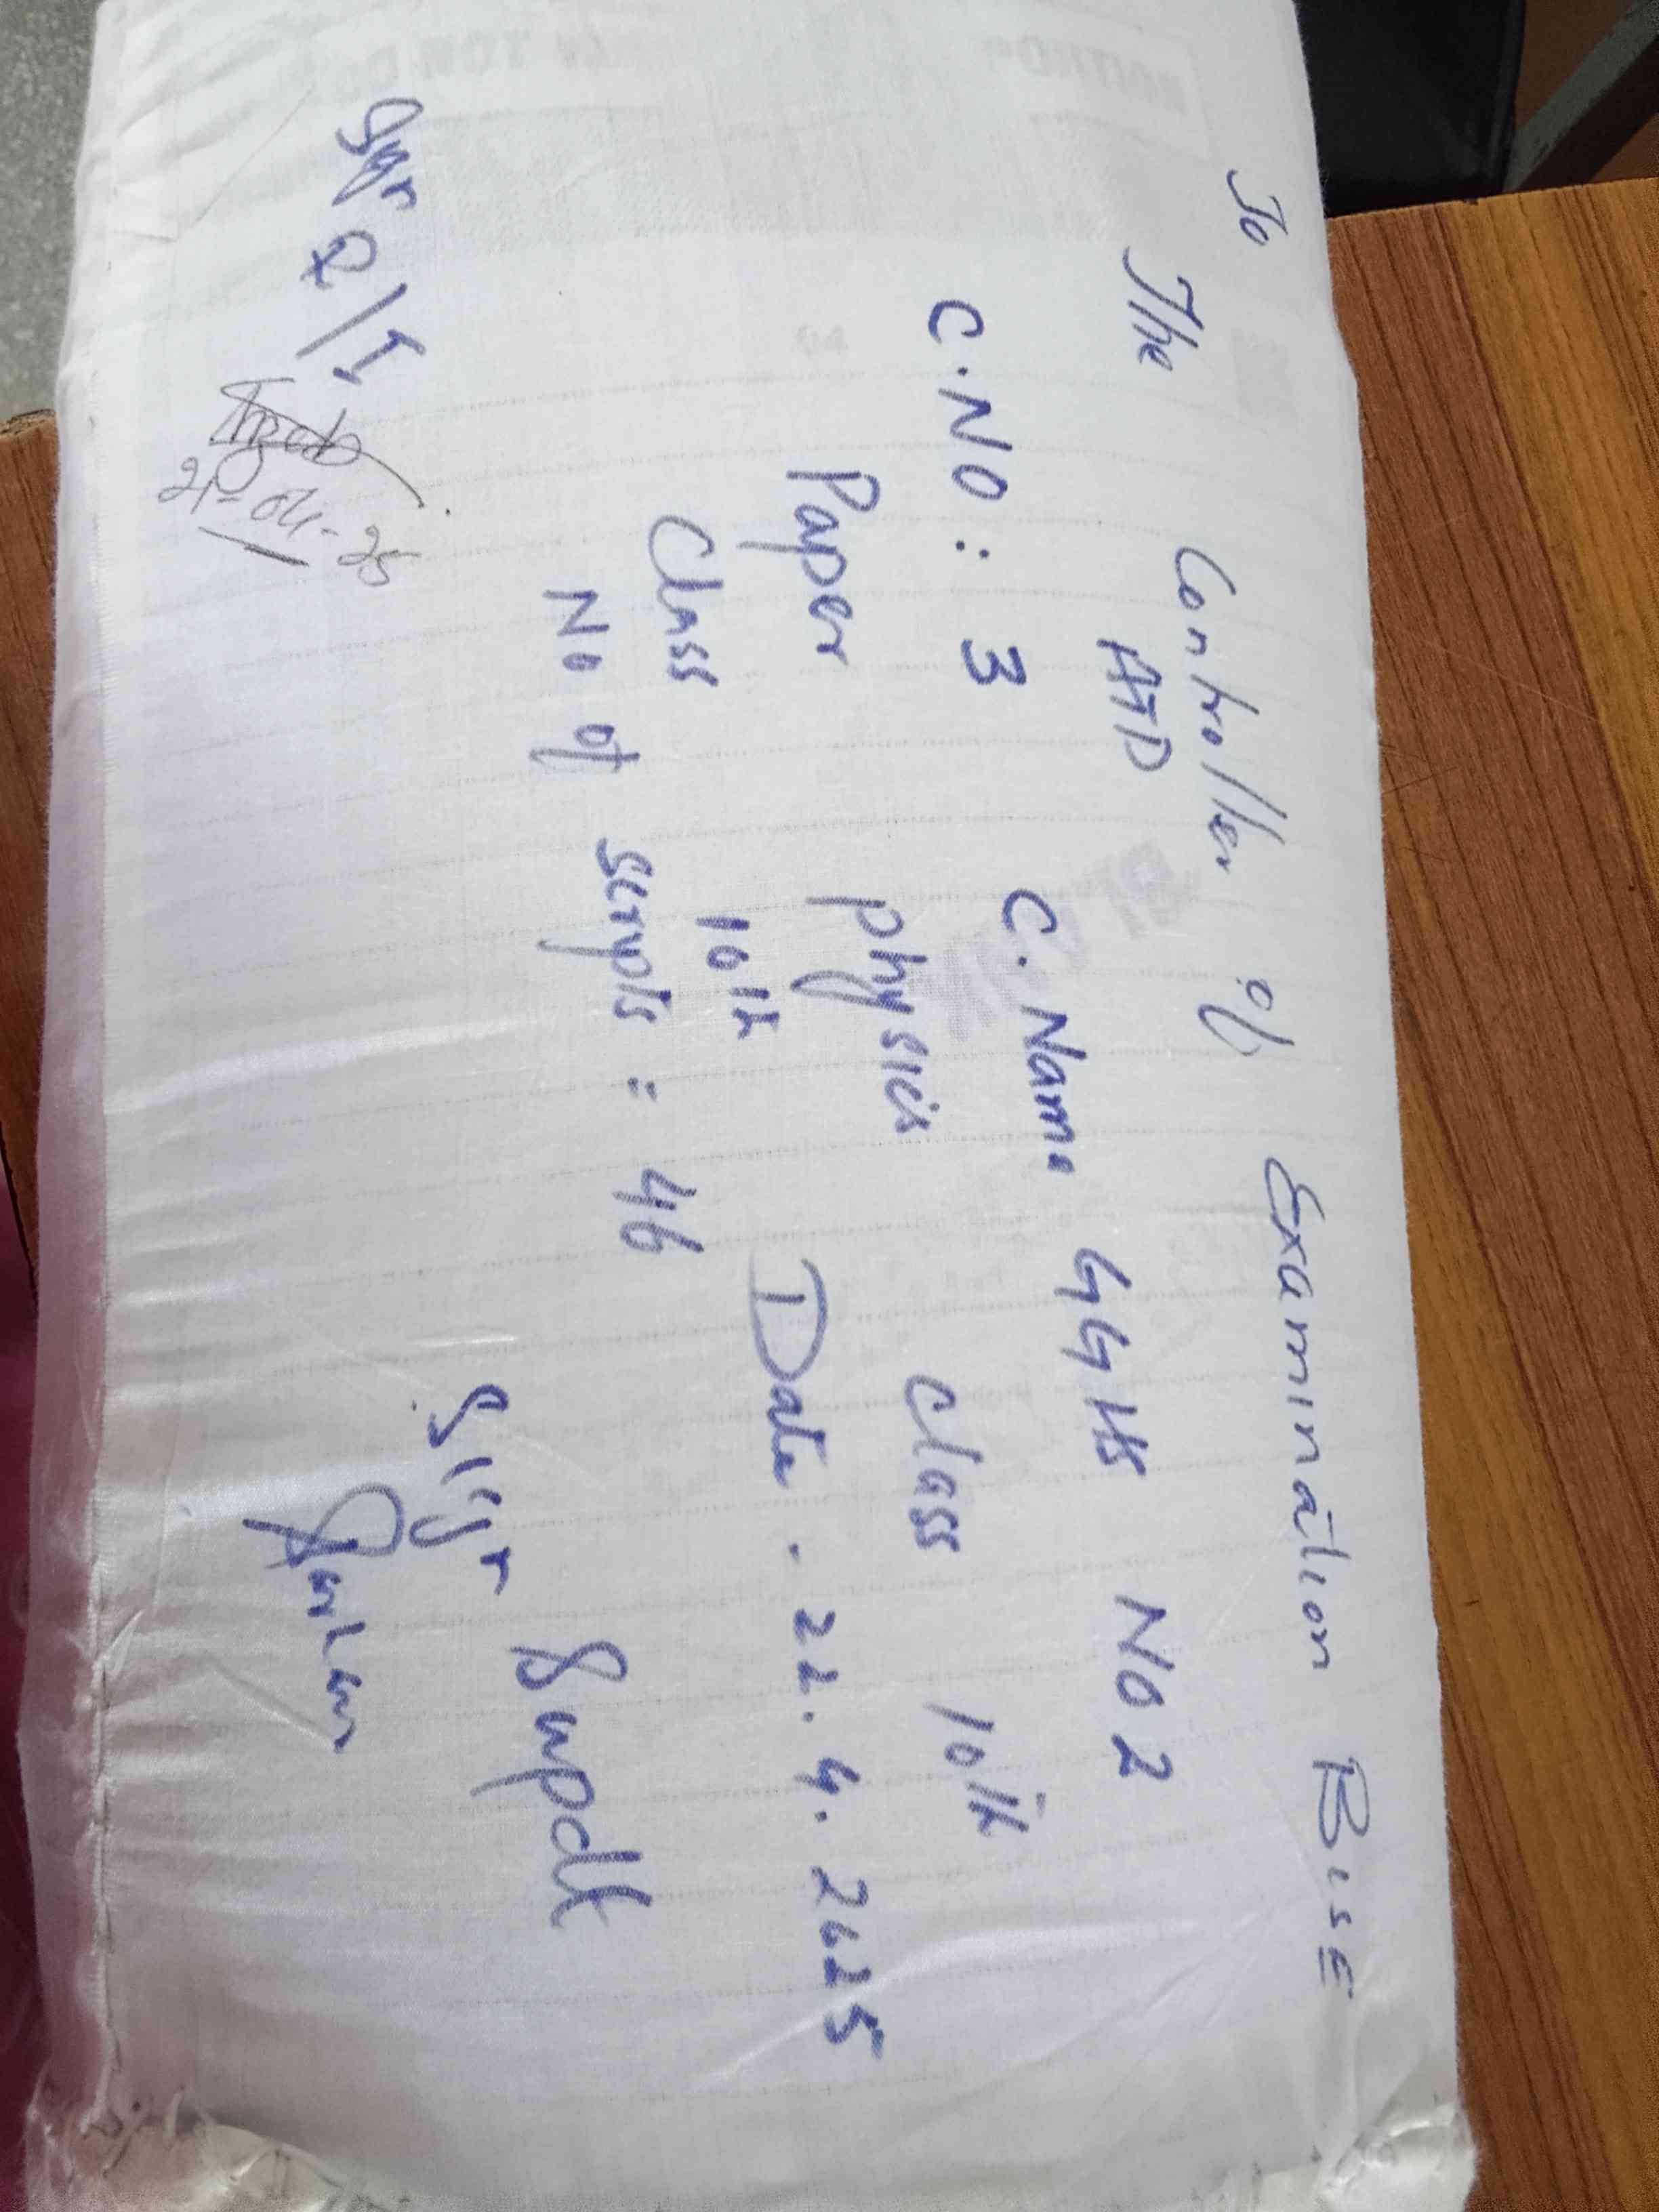 To
The Controller of Examination BISE
ATD
C.NO: 3 C. Name GGHS NO 2
Paper physics class 10th
Class 10th Date. 22.4.2025
No of scripts = 46
Sign R/I Sign Supdt
21-04-25